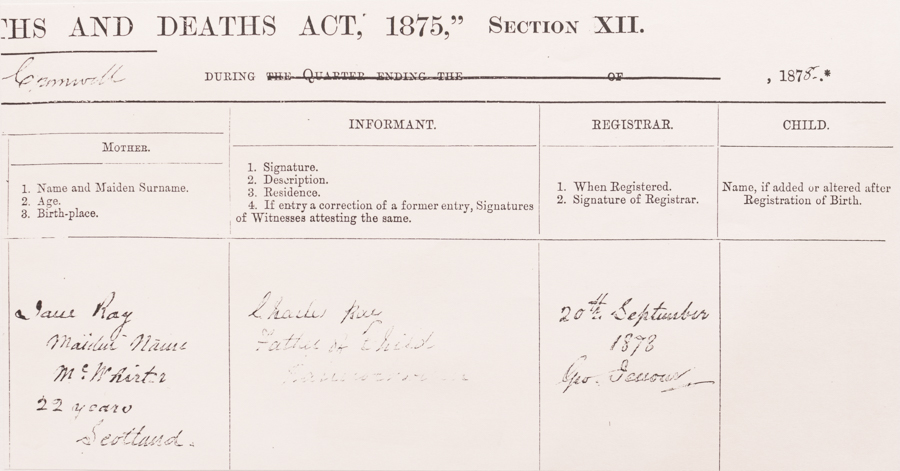 THS AND DEATHS ACT, 1875," SECTION XII.
DURING THE QUARTER ENDING THE OF , 1878.*
MOTHER.
1. Name and Maiden Surname.
2. Age.
3. Birth-place.
INFORMANT.
1. Signature.
2. Description.
3. Residence.
4. If entry a correction of a former entry, Signatures
of Witnesses attesting the same.
REGISTRAR.
1. When Registered.
2. Signature of Registrar.
CHILD.
Name, if added or altered after
Registration of Birth.
Jane Ray
Maiden Name
McWhirter
22 years
Scotland.
Charles Ray
Father of Child
20th September
1878
Geo.